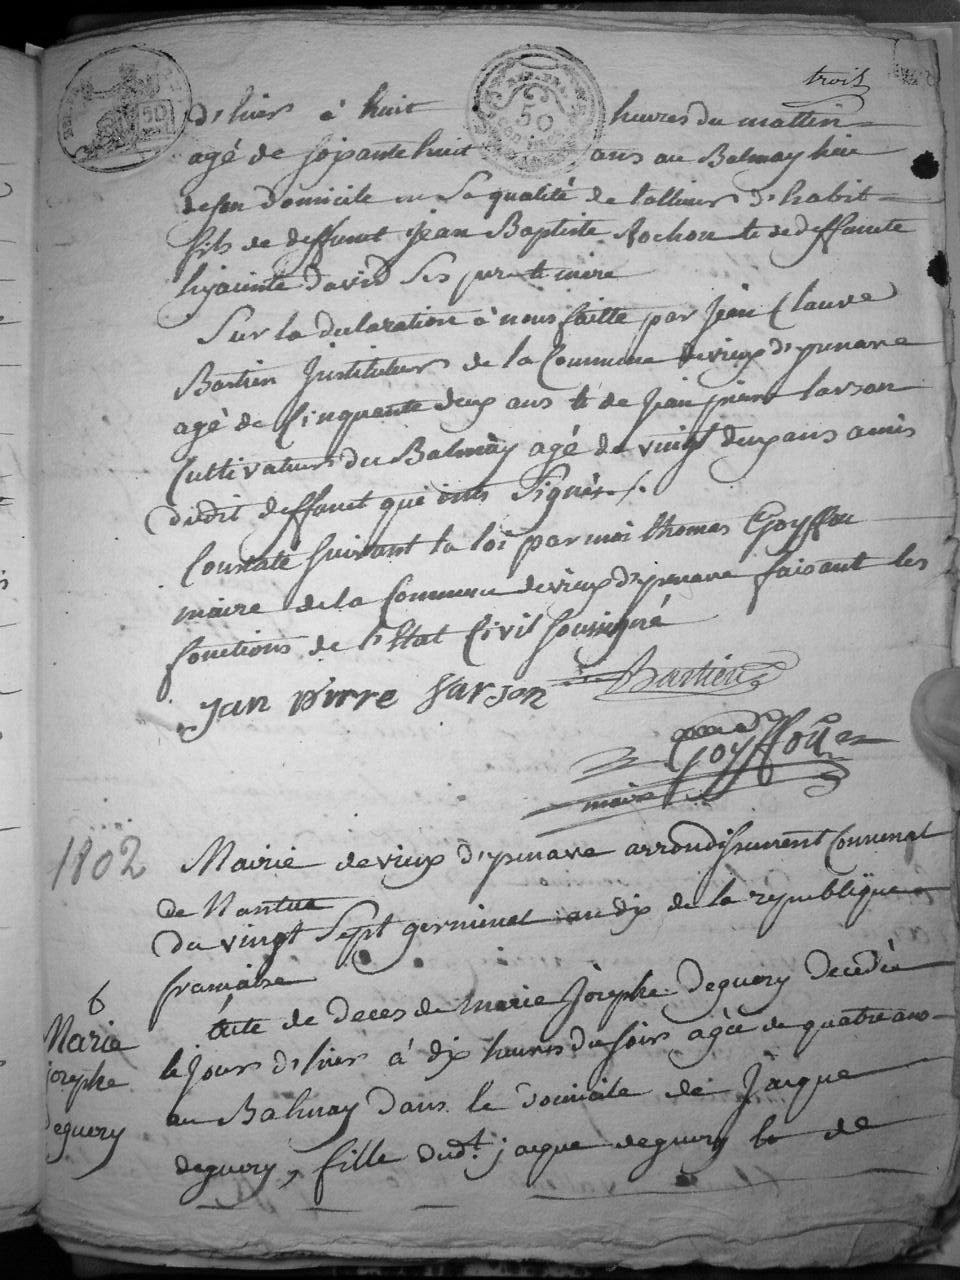 trois
50
50
d'hier à huit heures du mattin
agé de soixante huit ans au Balmay hure
de son domicile en sa qualité de tallieur d'habit
fils de deffunt jean Baptiste Rochon te de deffuncte
hyacinte david ses pere te mere
Sur la declaration à nous faitte par Jean Claude
Bastien Instituteur de la Commune de vieux d'yzenave
agé de Cinquante deux ans te de Jean pierre larson
Cultivateur du Balmay agé de vingt deux ans amis
dudit deffunt qui onts Signés ./.
Constaté suivant la loi par moi thomas Goyffon
maire de la Commune de vieux d'yzenave faisant les
fonctions de l'Etat Civil soussigné
Jan pirre larson Bastien
Goyffon
maire
1802
Mairie de vieux d'yzenave arrondissement Communal
de Nantua
Du vingt Sept germinal an dix de la republique
francaise
6
Marie
josephe
deguery
acte de deces de marie Josephe deguery decedée
le jour d'hier à dix heures du soir agée de quatre ans
au Balmay dans le domicile de Jacque
deguery, fille dudt. jacque deguery te de